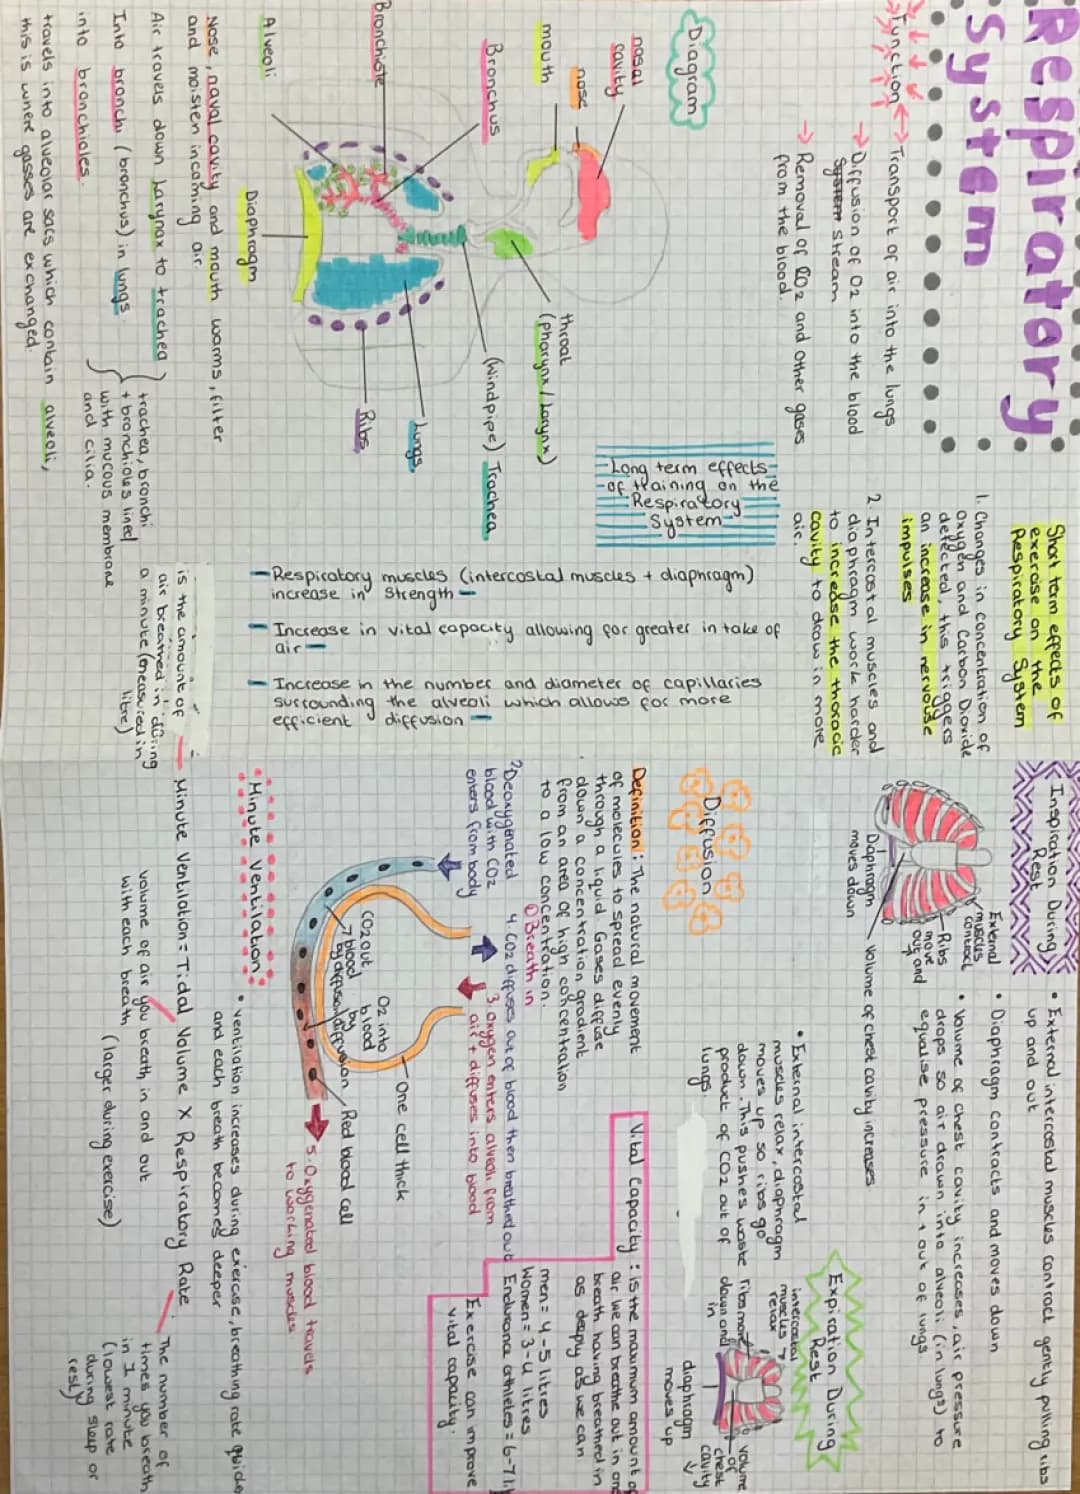 Respiratory
System
Function → Transport of air into the lungs
→ Diffusion of O2 into the blood
system stream
→ Removal of CO2 and other gases
from the blood.
Diagram
nasal
cavity
nose
mouth
Bronchus
Bronchiole
Alveoli
throat
(pharynx/larynx)
(windpipe) Trachea
Lungs
Ribs
Diaphragm
Nose, naval cavity and mouth warms, filter
and moisten incoming air.
Air travels down Larynax to trachea
Into bronchi (bronchus) in lungs
into bronchioles.
trachea, bronchi
+ bronchioles lined
with mucous membrane
and cilia.
travels into alveolar sacs which contain alveoli,
this is where gasses are exchanged.
Short term effects of
exercise on the
Respiratory System
1. Changes in concentration of
Oxygen and Carbon Dioxide
detected, this triggers
an increase in nervouse
impulses
2. Intercostal muscles and
diaphragm work harder
to increase the thoracic
cavity to draw in more
air.
Long term effects
of training on the
Respiratory
System
- Respiratory muscles (intercostal muscles + diaphragm)
increase in strength -
- Increase in vital capacity allowing for greater in take of
air -
- Increase in the number and diameter of capillaries
surrounding the alveoli which allows for more
efficient diffusion -
Inspiration During
Rest
• External intercostal muscles contract gently pulling ribs
up and out
• Diaphragm contracts and moves down
• Volume of chest cavity increases, air pressure
drops so air drawn into alveoli (in lungs) to
equalise pressure in + out of lungs.
External
muscles
contract
Ribs
move
out and
up
Diaphragm
moves down
Volume of chest cavity increases
Expiration During
Rest
• External intercostal
muscles relax, diaphragm
moves up so ribs go
down. This pushes waste
product of CO2 out of
lungs.
intercostal
muscles
relax
ribs move
down and
in
volume
of
chest
cavity
↓
diaphragm
moves up
Diffusion
Definition: The natural movement
of molecules to spread evenly
through a liquid. Gases diffuse
down a concentration gradient
from an area of high concentration
to a low concentration.
Vital Capacity: is the maximum amount of
air we can breathe out in one
breath having breathed in
as deeply as we can
men = 4-5 litres
Women = 3-4 litres
Endurance athletes = 6-7
Exercise can improve
vital capacity.
① Breath in
2 Deoxygenated
blood with CO2
enters from body
3. Oxygen enters alveoli from
air + diffuses into blood
4. CO2 diffuses out of blood then breathed out
5. Oxygenated blood travels
to working muscles
CO2 out
blood
by diffusion
O2 into
blood
by
diffusion
One cell thick
Red blood cell
Minute Ventilation
• Ventilation increases during exercise, breathing rate quicker
and each breath becomes deeper
Minute Ventilation = Tidal Volume X Respiratory Rate
is the amount of
air breathed in during
a minute (measured in
litre)
volume of air you breath in and out
with each breath
(larger during exercise)
The number of
times you breath
in 1 minute
(lowest rate
during sleep or
rest)